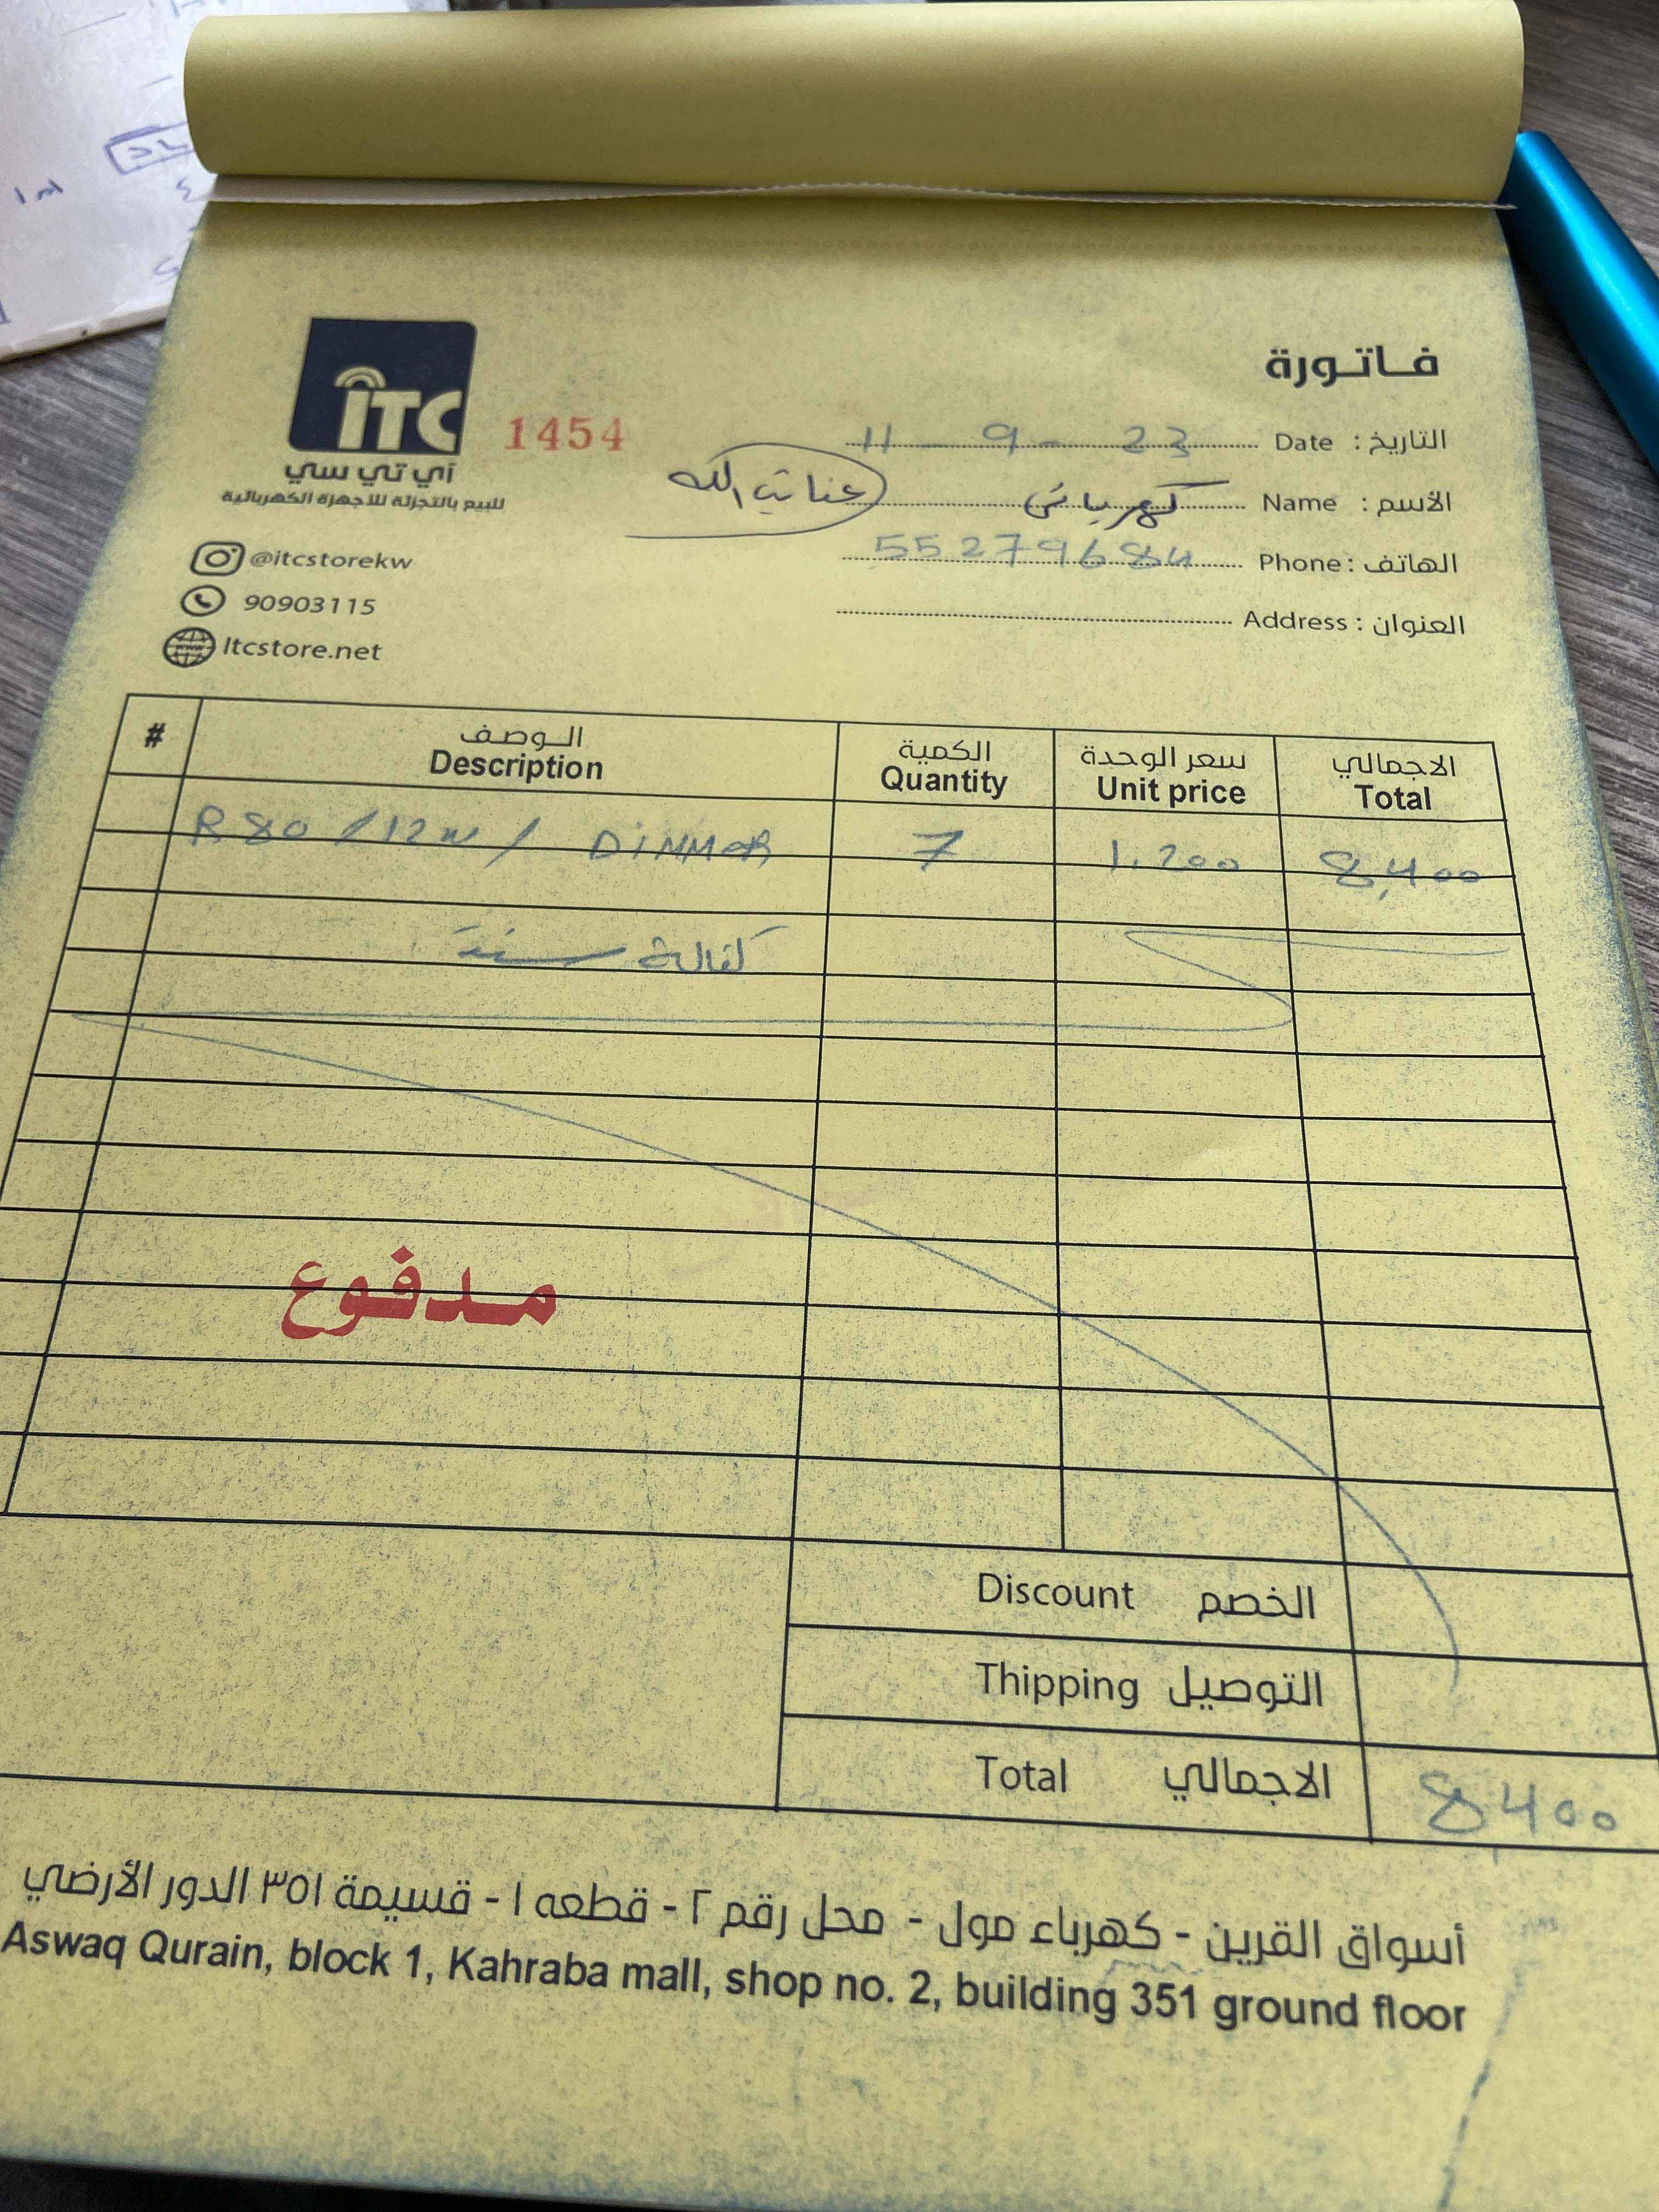 فاتورة
ITC
آي تي سي
للبيع بالتجزئة للأجهزة الكهربائية
1454
@itcstorekw
90903115
Itcstore.net
التاريخ : Date 11 - 9 - 23
الأسم : Name كهربائي عنايت الله
الهاتف : Phone 55279684
العنوان : Address
# الوصف Description الكمية Quantity سعر الوحدة Unit price الاجمالي Total
R80 / 12W / DIMMER 7 1.200 8,400
كفالة سنة
مدفوع
Discount الخصم
Thipping التوصيل
Total الاجمالي 8400
أسواق القرين - كهرباء مول - محل رقم ٢ - قطعه ١ - قسيمة ٣٥١ الدور الأرضي
Aswaq Qurain, block 1, Kahraba mall, shop no. 2, building 351 ground floor